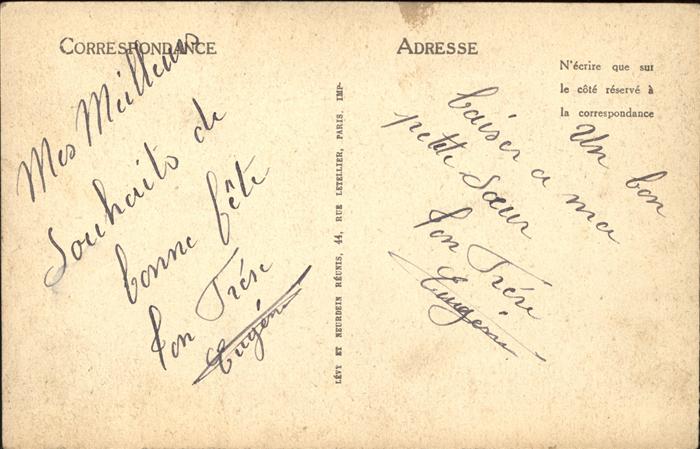 CORRESPONDANCE
Mes Meilleurs
Souhaits de
bonne fête
ton Frére
Eugéne
LÉVY ET NEURDEIN RÉUNIS, 44, RUE LETELLIER, PARIS. IMP-
ADRESSE
N'écrire que sur
le côté réservé à
la correspondance
Un bon
baiser a ma
petite Sœur
ton Frére
Eugene